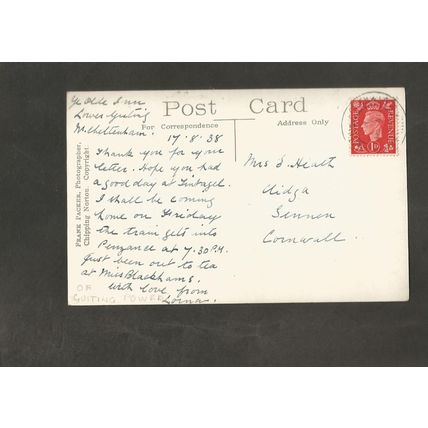 Ye Olde Inn
Lower Guiting
Nr. Cheltenham.
17.8.38
Thank you for your
letter. Hope you had
a good day at Tintagel.
I shall be coming
home on Friday
the train gets into
Penzance at 7.30 P.M.
Just been out to tea
at Miss Blackhams.
with love from
Lorna.
OF
GUITING POWER
Post Card
For Correspondence
Address Only
FRANK PACKER, Photographer,
Chipping Norton Copyright.
Mrs J. Heath
Sennen
Cornwall.
POSTAGE
REVENUE
1D